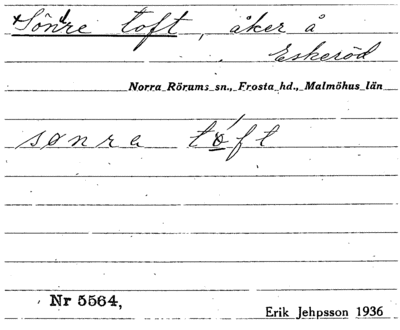 +Söndre toft, åker å
Eskeröd
Norra Rörums sn., Frosta hd., Malmöhus län
sønra tǿft
Nr 5564,
Erik Jehpsson 1936